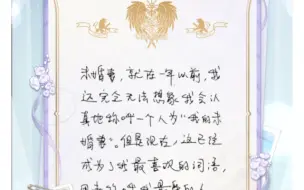 未婚妻，就在一年以前，我
还完全无法想象我会认
真地称呼一个人为“我的未
婚妻”。但是现在，这已经
成为了我最喜欢的词语，
因为